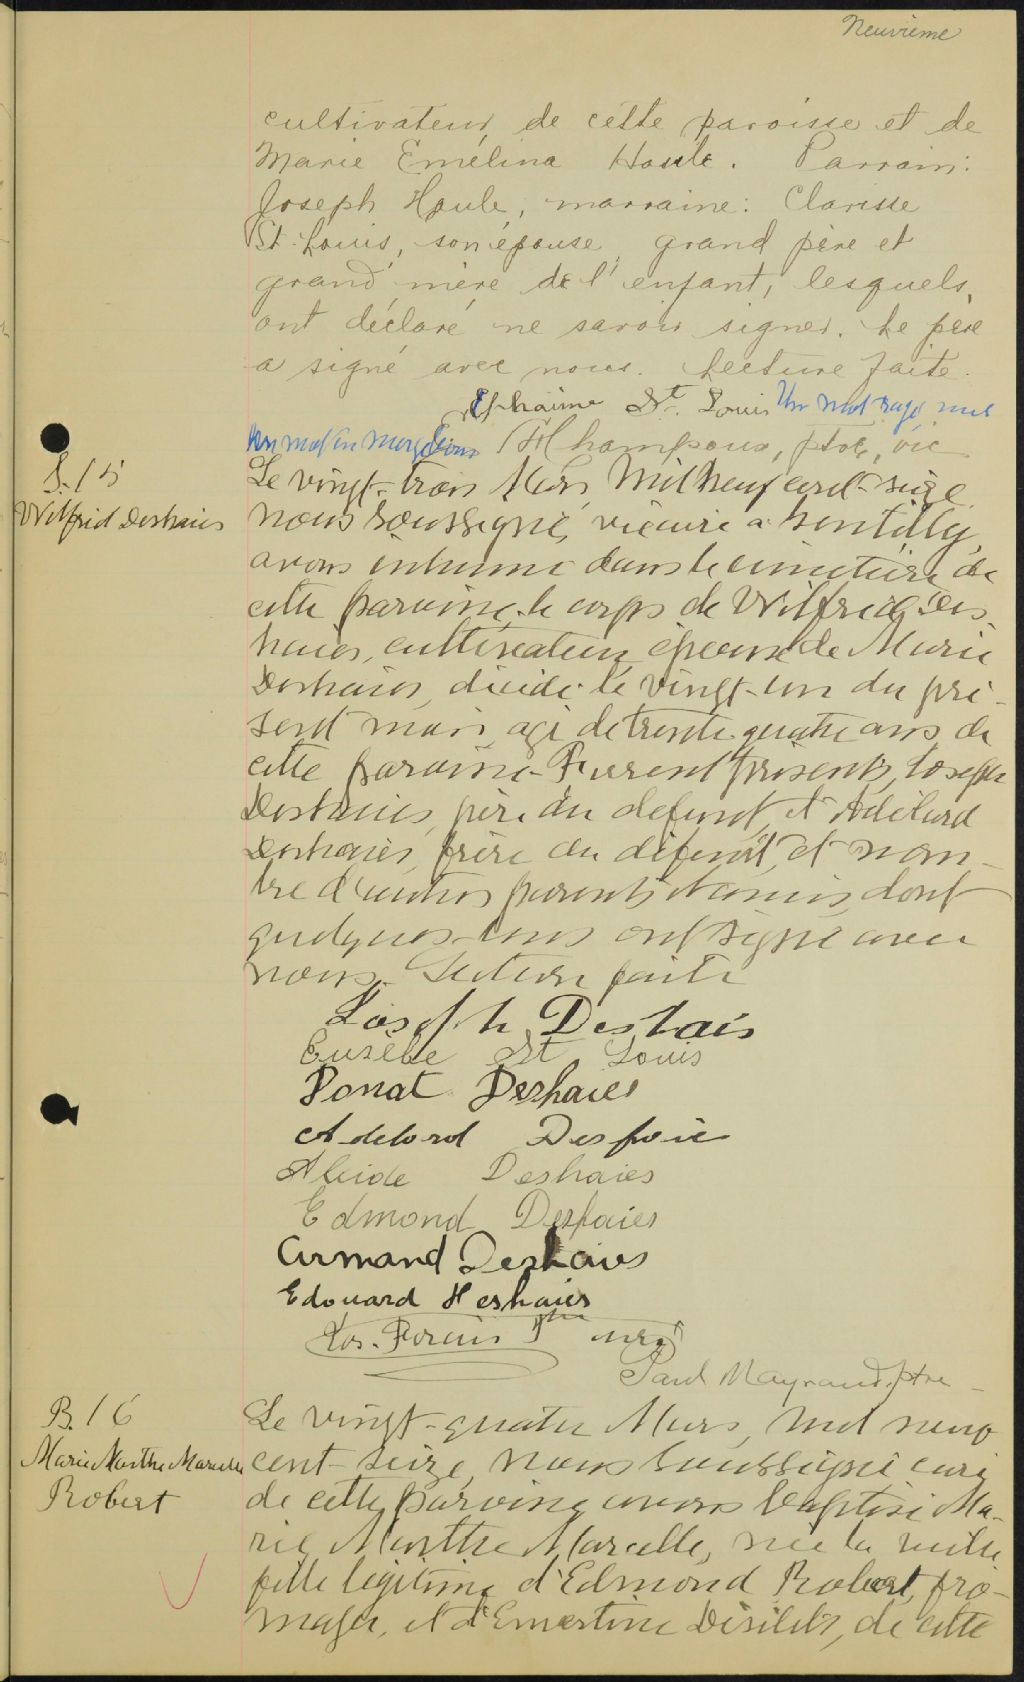 Neuvième
cultivateur, de cette paroisse et de
Marie Emélina Houle. Parrain:
Joseph Houle, marraine: Clarisse
St. Louis, son épouse, grand père et
grand'mère de l'enfant, lesquels,
ont déclaré ne savoir signer. Le père
a signé avec nous. Lecture faite.
Ephraime St. Louis Un mot rayé nul
Un mot en marge bon ptre, vic
S. 15
Wilfrid Deshaies
Le vingt-trois Mars Mil neuf cent-seize
nous soussigné, vicaire à Gentilly,
avons inhumé dans le cimetière de
cette paroisse, le corps de Wilfrid Des-
haies, cultivateur, époux de Marie
Deshaies, décédé le vingt-un du pré-
sent mois, agé de trente-quatre ans de
cette paroisse. Furent présents, Joseph
Deshaies, père du defunt, et Adélard
Deshaies, frère du défunt, et nom-
bre d'autres parents et amis, dont
quelques-uns ont signé avec
nous. Lecture faite
Joseph Deshais
Eusèbe St Louis
Donat Deshaies
Adelard Deshaie
Alcide Deshaies
Edmond Deshaies
Armand Deshaies
Edouard Heshaies
Jos.
Paul Mayrand, ptre
B. 16
Marie Marthe Marcelle
Robert
Le vingt-quatre Mars, mil neuf
cent-seize, nous soussigné curé
de cette paroisse avons baptisé Ma-
rie, Marthe Marcelle, née la veille
fille légitime d'Edmond Robert, fro-
mager, et d'Ernestine Désilets, de cette